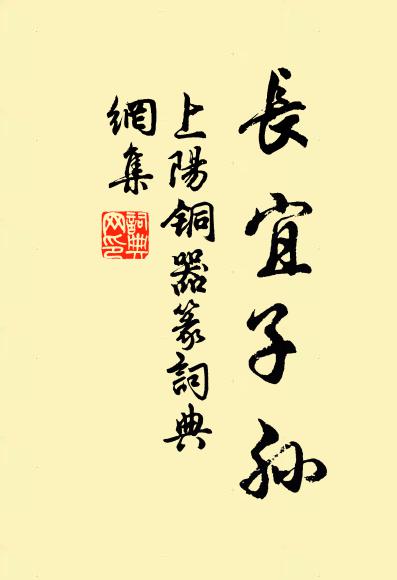 長宜子孫
上陽铜器篆詞典
網集
詞典
网印